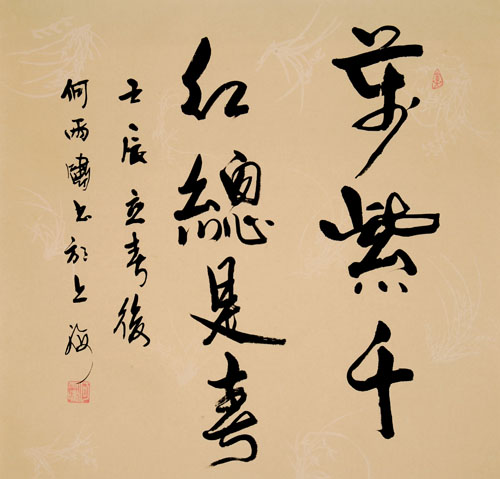 萬紫千
紅總是春
壬辰立春後
何雨嘯書於上海